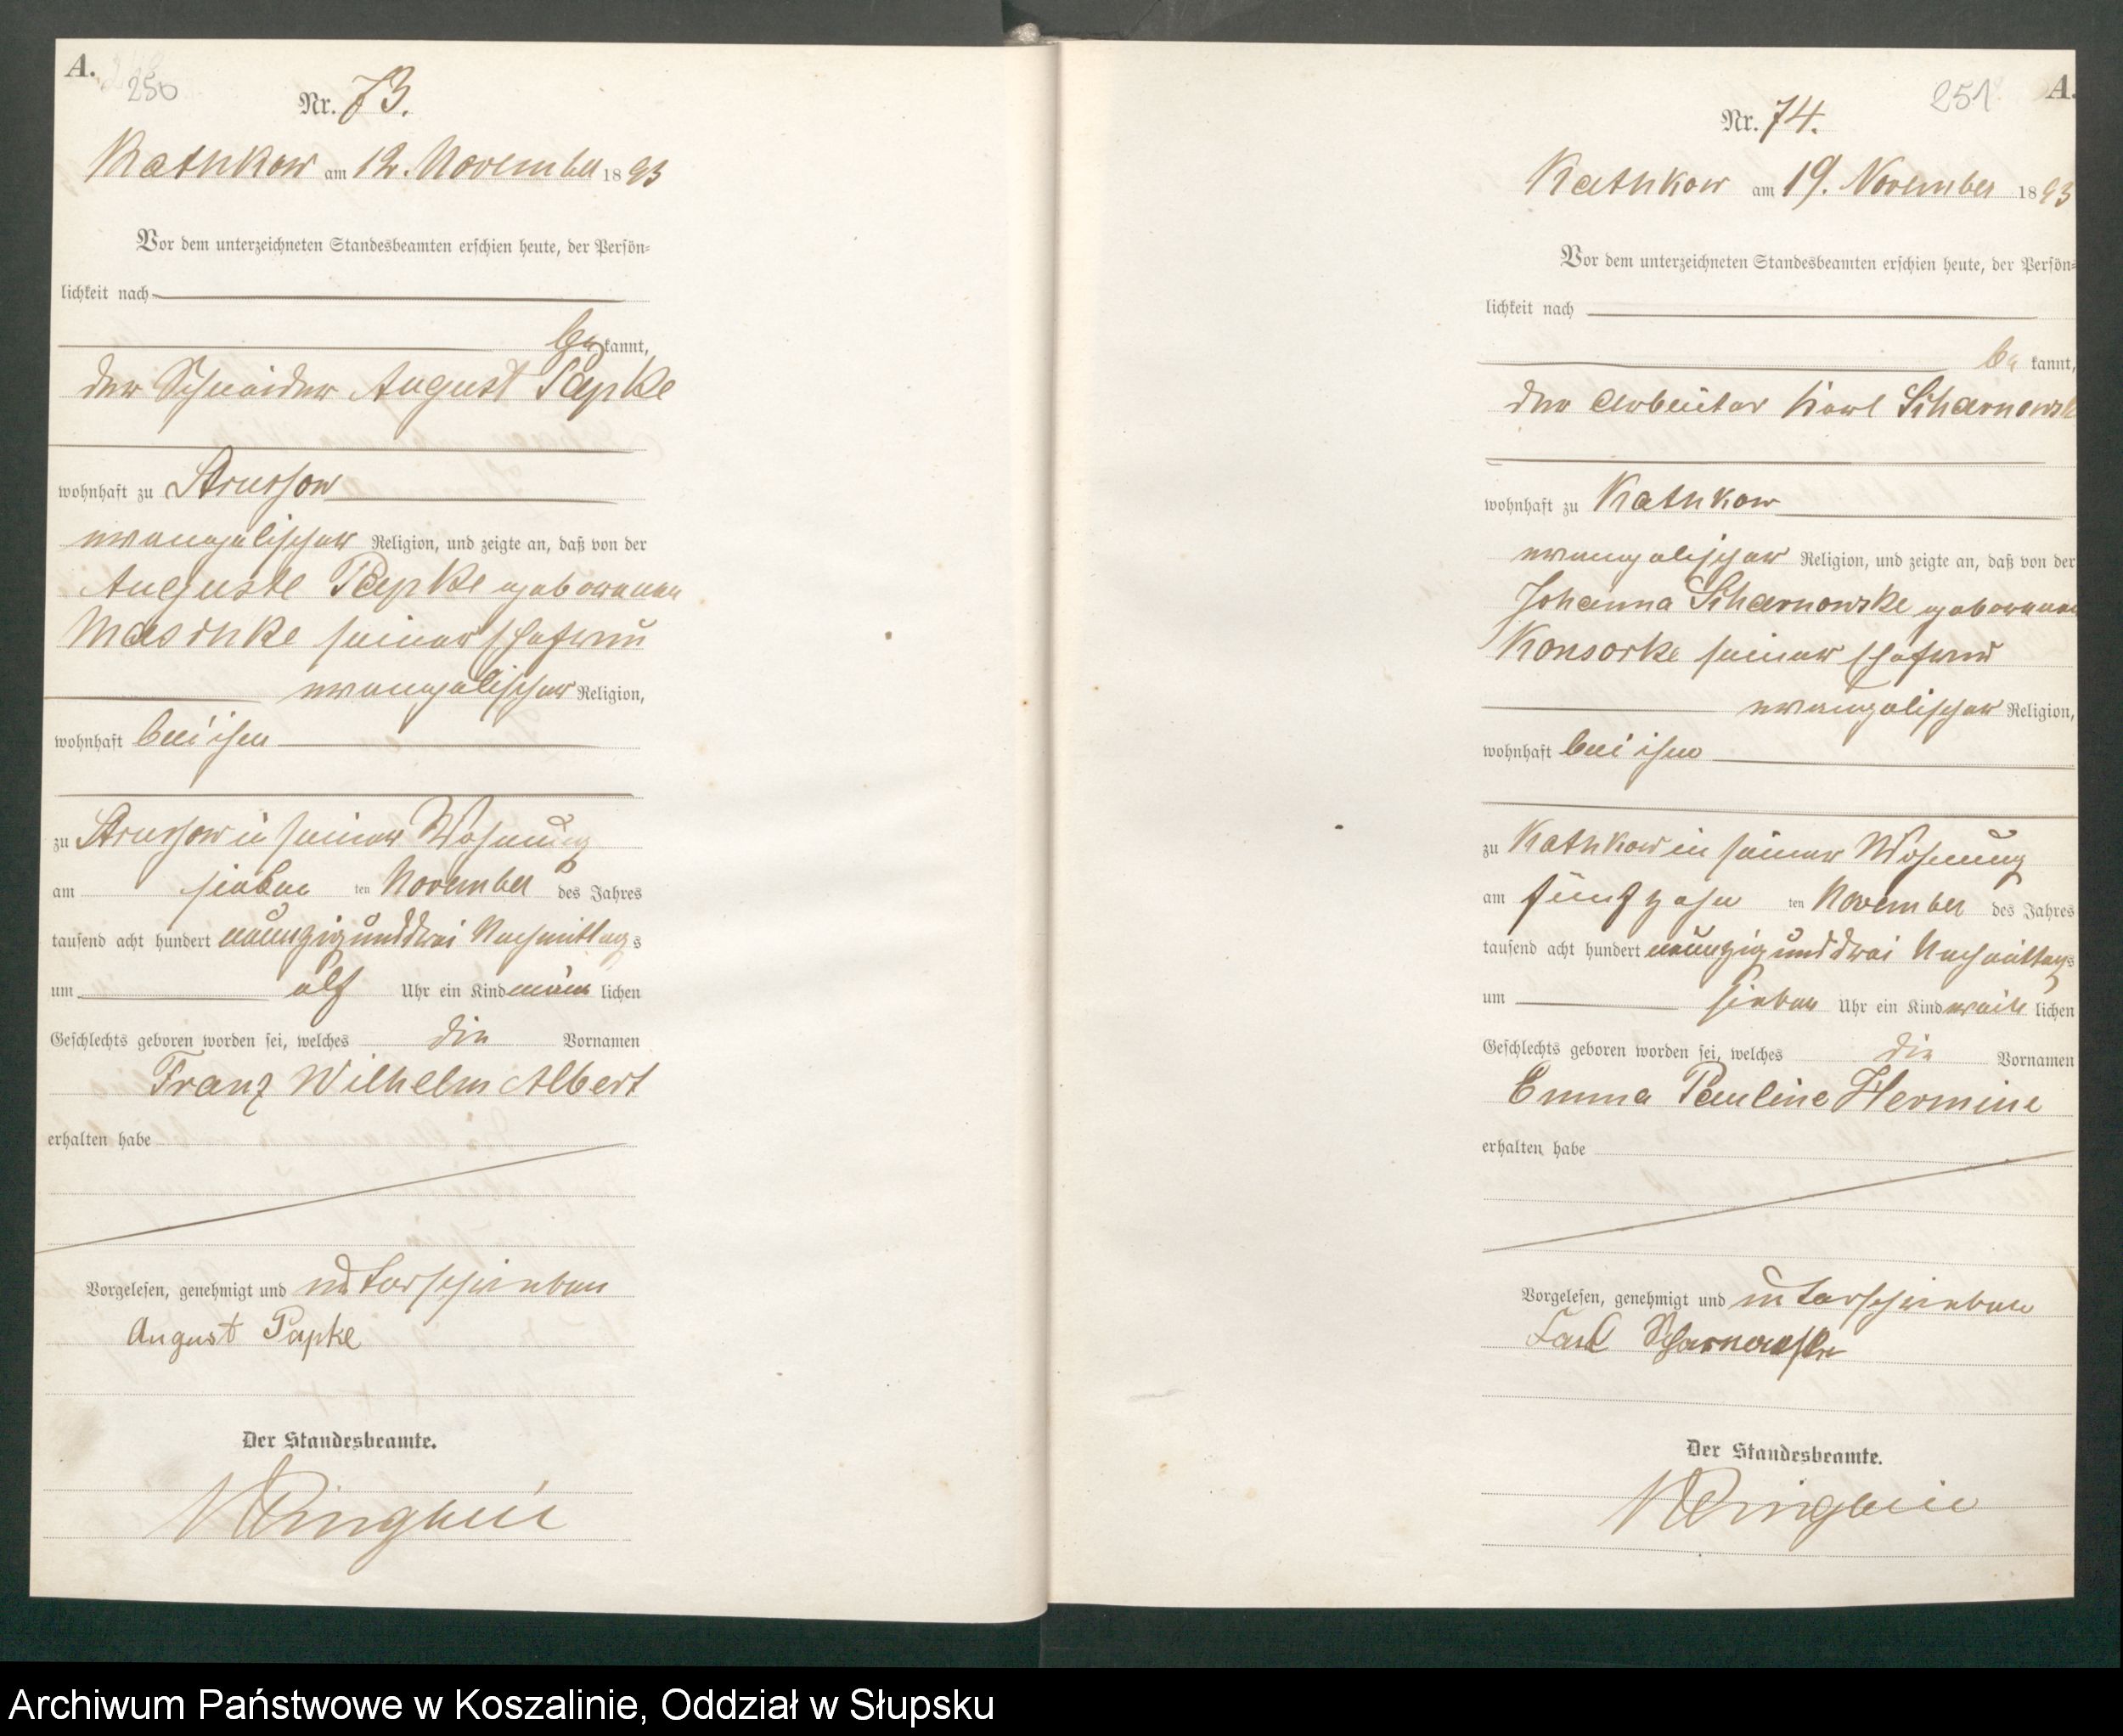 A.
250
Nr. 73.
Kathkow am 12. November 1893
Vor dem unterzeichneten Standesbeamten erschien heute, der Persön-
lichkeit nach
be kannt,
der Schneider August Papke
wohnhaft zu Strussow
evangelischer Religion, und zeigte an, daß von der
Auguste Papke geborenen
Maschke seiner Ehefrau
evangelischer Religion,
wohnhaft bei ihm
zu Strussow in seiner Wohnung
am sieben ten November des Jahres
tausend acht hundert neunzig und drei Nachmittags
um elf Uhr ein Kind männ lichen
Geschlechts geboren worden sei, welches die Vornamen
Franz Wilhelm Albert
erhalten habe
Vorgelesen, genehmigt und unterschrieben
August Papke
Der Standesbeamte.
251
A.
Nr. 74.
Kathkow am 19. November 1893
Vor dem unterzeichneten Standesbeamten erschien heute, der Persön-
lichkeit nach
be kannt,
der Arbeiter Karl Scharnowsk
wohnhaft zu Kathkow
evangelischer Religion, und zeigte an, daß von der
Johanna Scharnowske geborenen
Konsorke seiner Ehefrau
evangelischer Religion,
wohnhaft bei ihm
zu Kathkow in seiner Wohnung
am fünfzehn ten November des Jahres
tausend acht hundert neunzig und drei Nachmittags
um sieben Uhr ein Kind weib lichen
Geschlechts geboren worden sei, welches die Vornamen
Emma Pauline Hermine
erhalten habe
Vorgelesen, genehmigt und unterschrieben
Karl Scharnowske
Der Standesbeamte.
Archiwum Państwowe w Koszalinie, Oddział w Słupsku